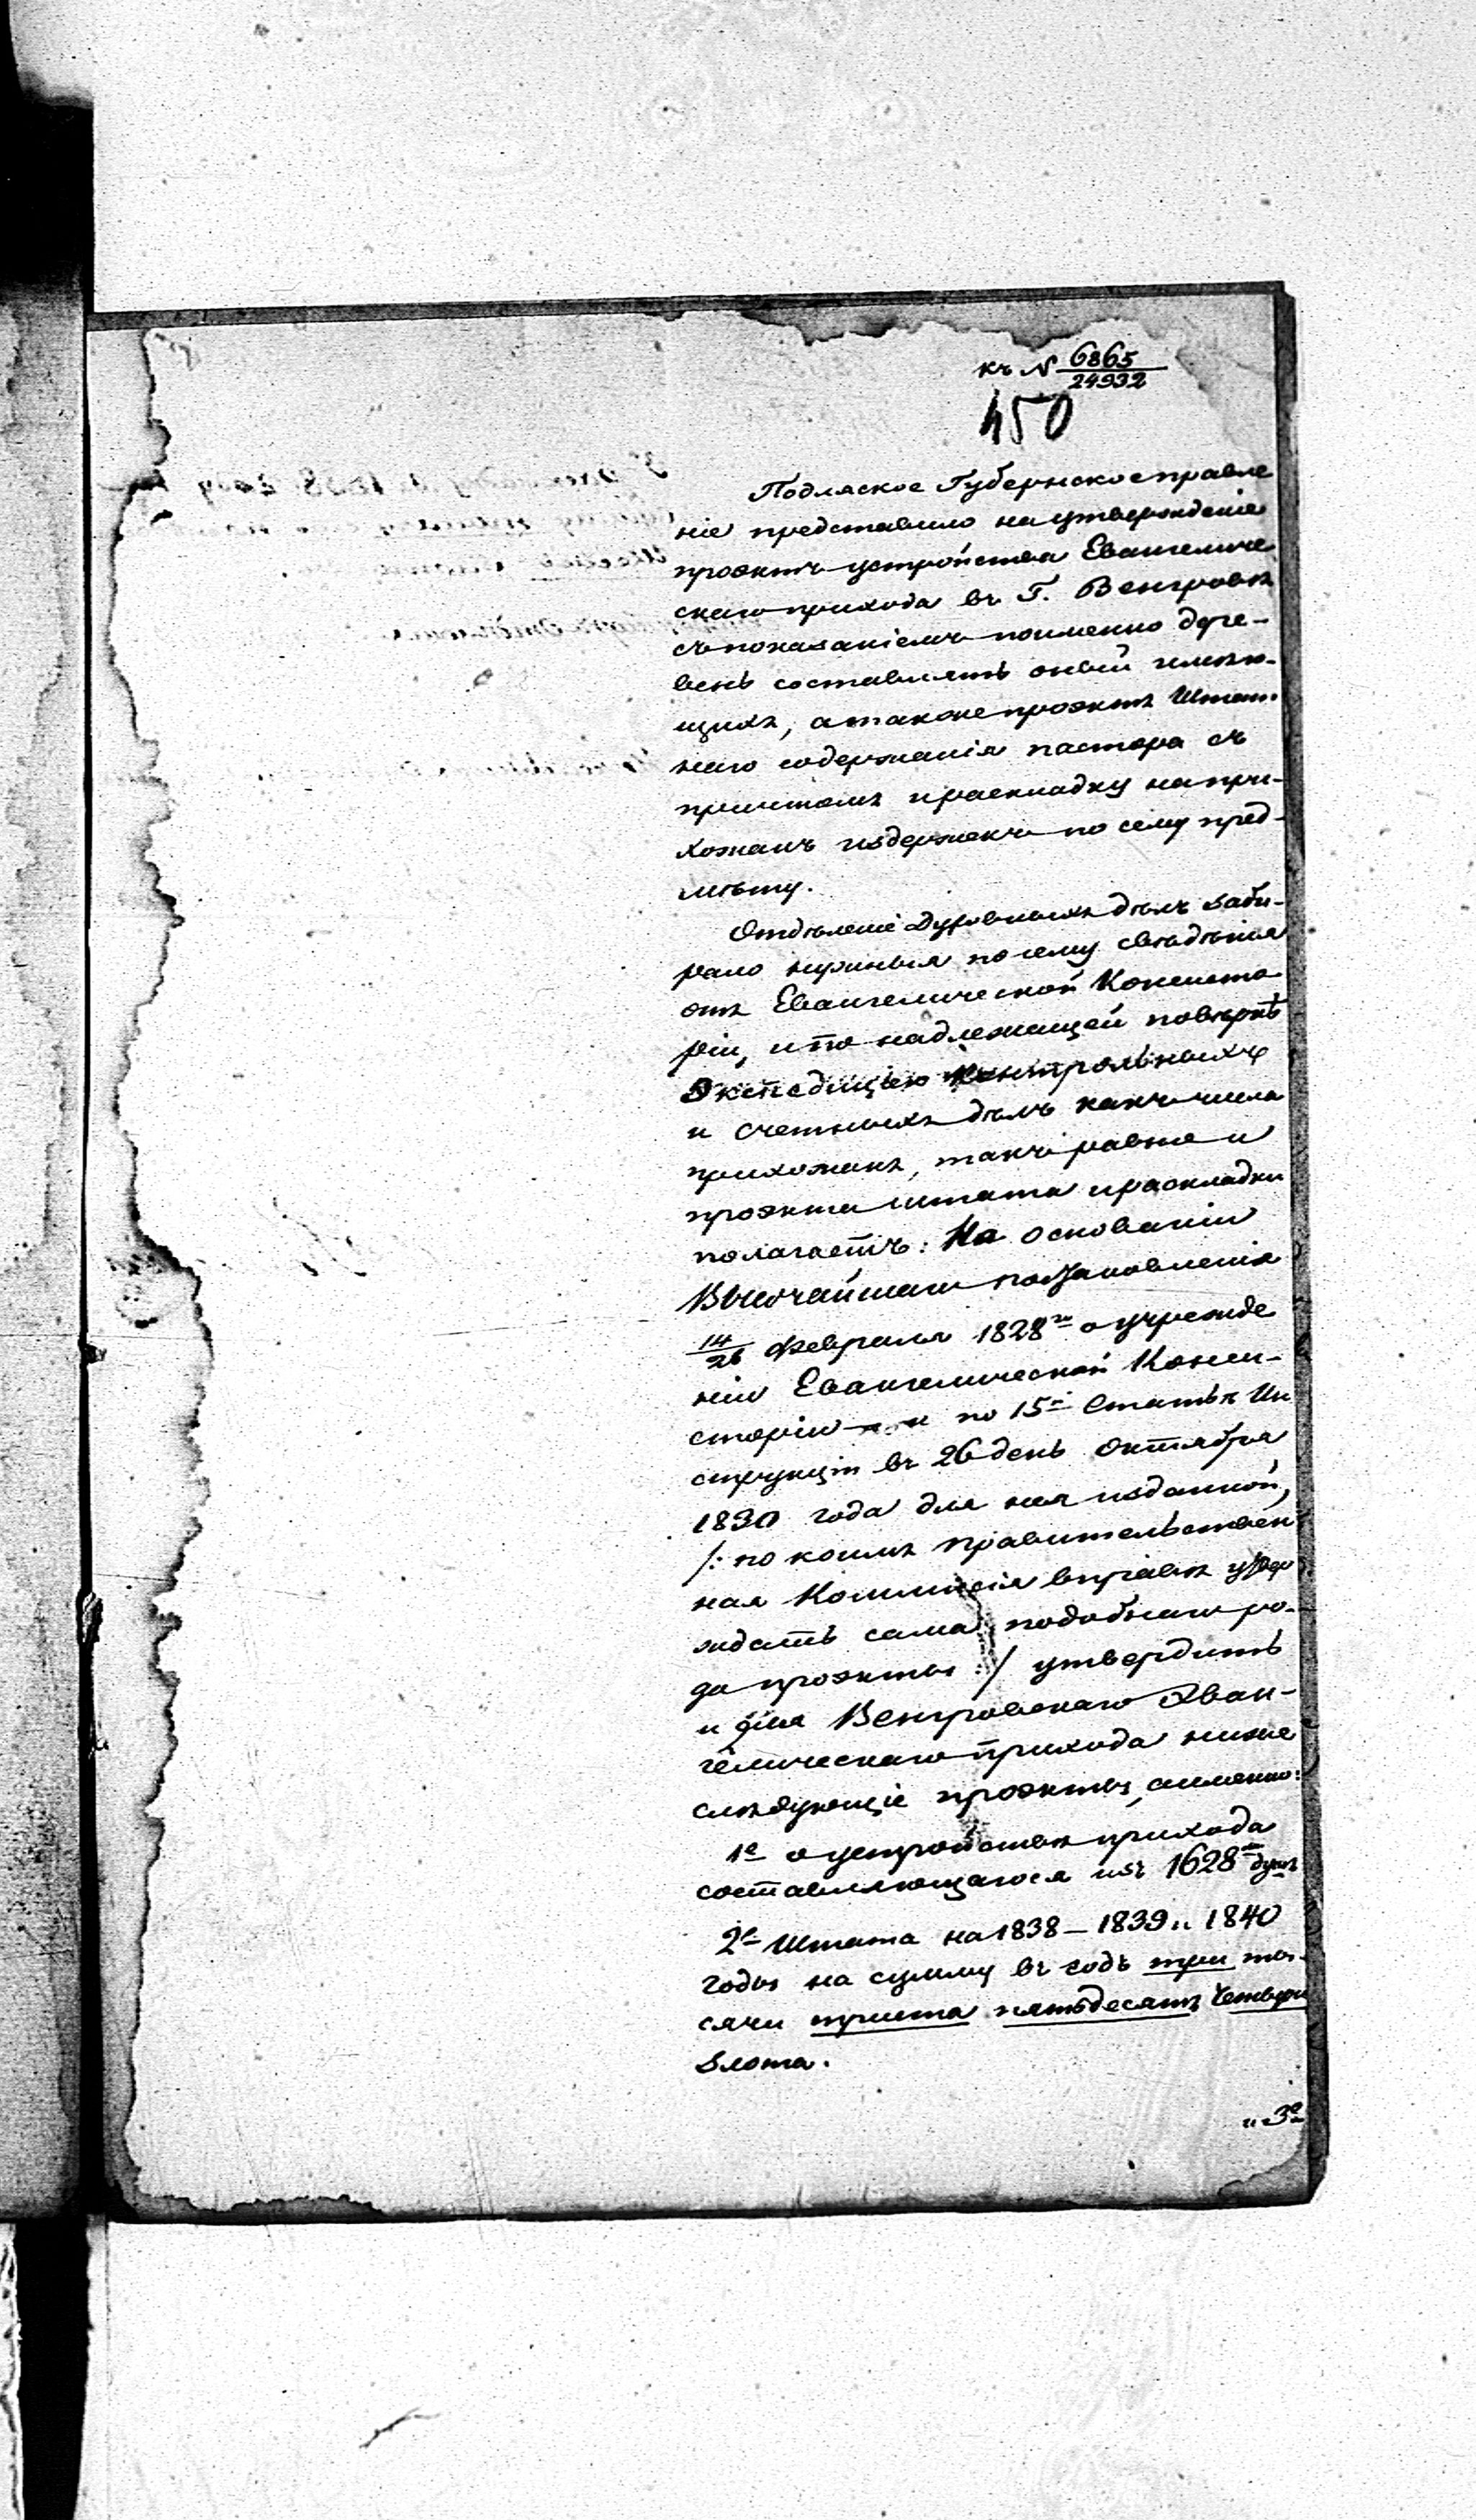 къ № 6865/24932
450
Подляское Губернское правле
ніе представило на утвержденіе
проэктъ устройства Евангеличе
скаго прихода въ Г. Венгровѣ
съ показаніемъ поименно дере-
вень составлять оный имѣю-
щихъ, а также проэктъ Штат-
наго содержанія пастора съ
причтомъ и раскладку на при-
хожанъ издержекъ по сему пред-
мѣту.
Отдѣленіе Духовныхъ дѣлъ заби-
рало нужныя по сему свѣдѣнія
отъ Евангелической Консисто
ріи, и по надлежащей повѣркѣ
Экспедиціею Контрольныхъ
и Счетныхъ дѣлъ какъ числа
прихожанъ, такъ равно и
проэкта штата и раскладки
полагаетъ: На основаніи
Высочайшаго постановленія
14/26 Февраля 1828го о учрежде
ніи Евангелической Конси-
сторіи и по 15й Статьѣ Ин
струкціи въ 26 день Октября
1830 года для нея изданной,
/: по коимъ Правительствен
ная Коммисія вправѣ утвер
ждать сама подобнаго ро-
да проэкты :/ утвердить
и для Венгровскаго Эван-
гелическаго прихода ниже
слѣдующіе проэкты, а именно:
1е о устройствѣ прихода
составляющагося изъ 1628 душъ
2е Штата на 1838 – 1839 и 1840
годы на сумму въ годъ три ты-
сячи триста пятьдесятъ четыре
злота.
и 3е